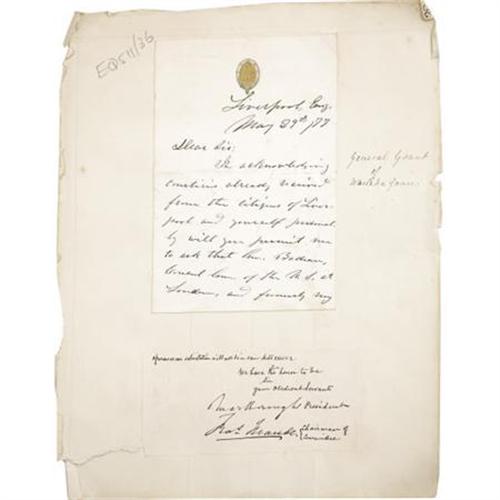 EQ511/36
Liverpool, Eng.
May 29th /77
Dear Sir:
In acknowledging
courtesies already received
from the citizens of Liver-
pool and yourself personal-
ly will you permit me
to ask that Gen. Badeau,
Consul Gen. of the U.S. at
London, and formerly my
General Grant
of
we have the honor to be
Sir
your Obedient Servants
Marlborough President
Chairman of